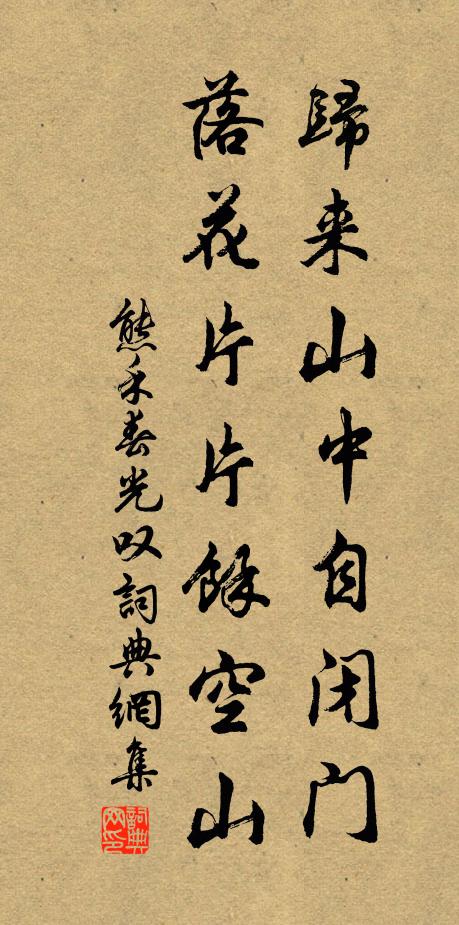 歸来山中自闭门
落花片片餘空山
熊禾春光叹詞典網集
詞典网印